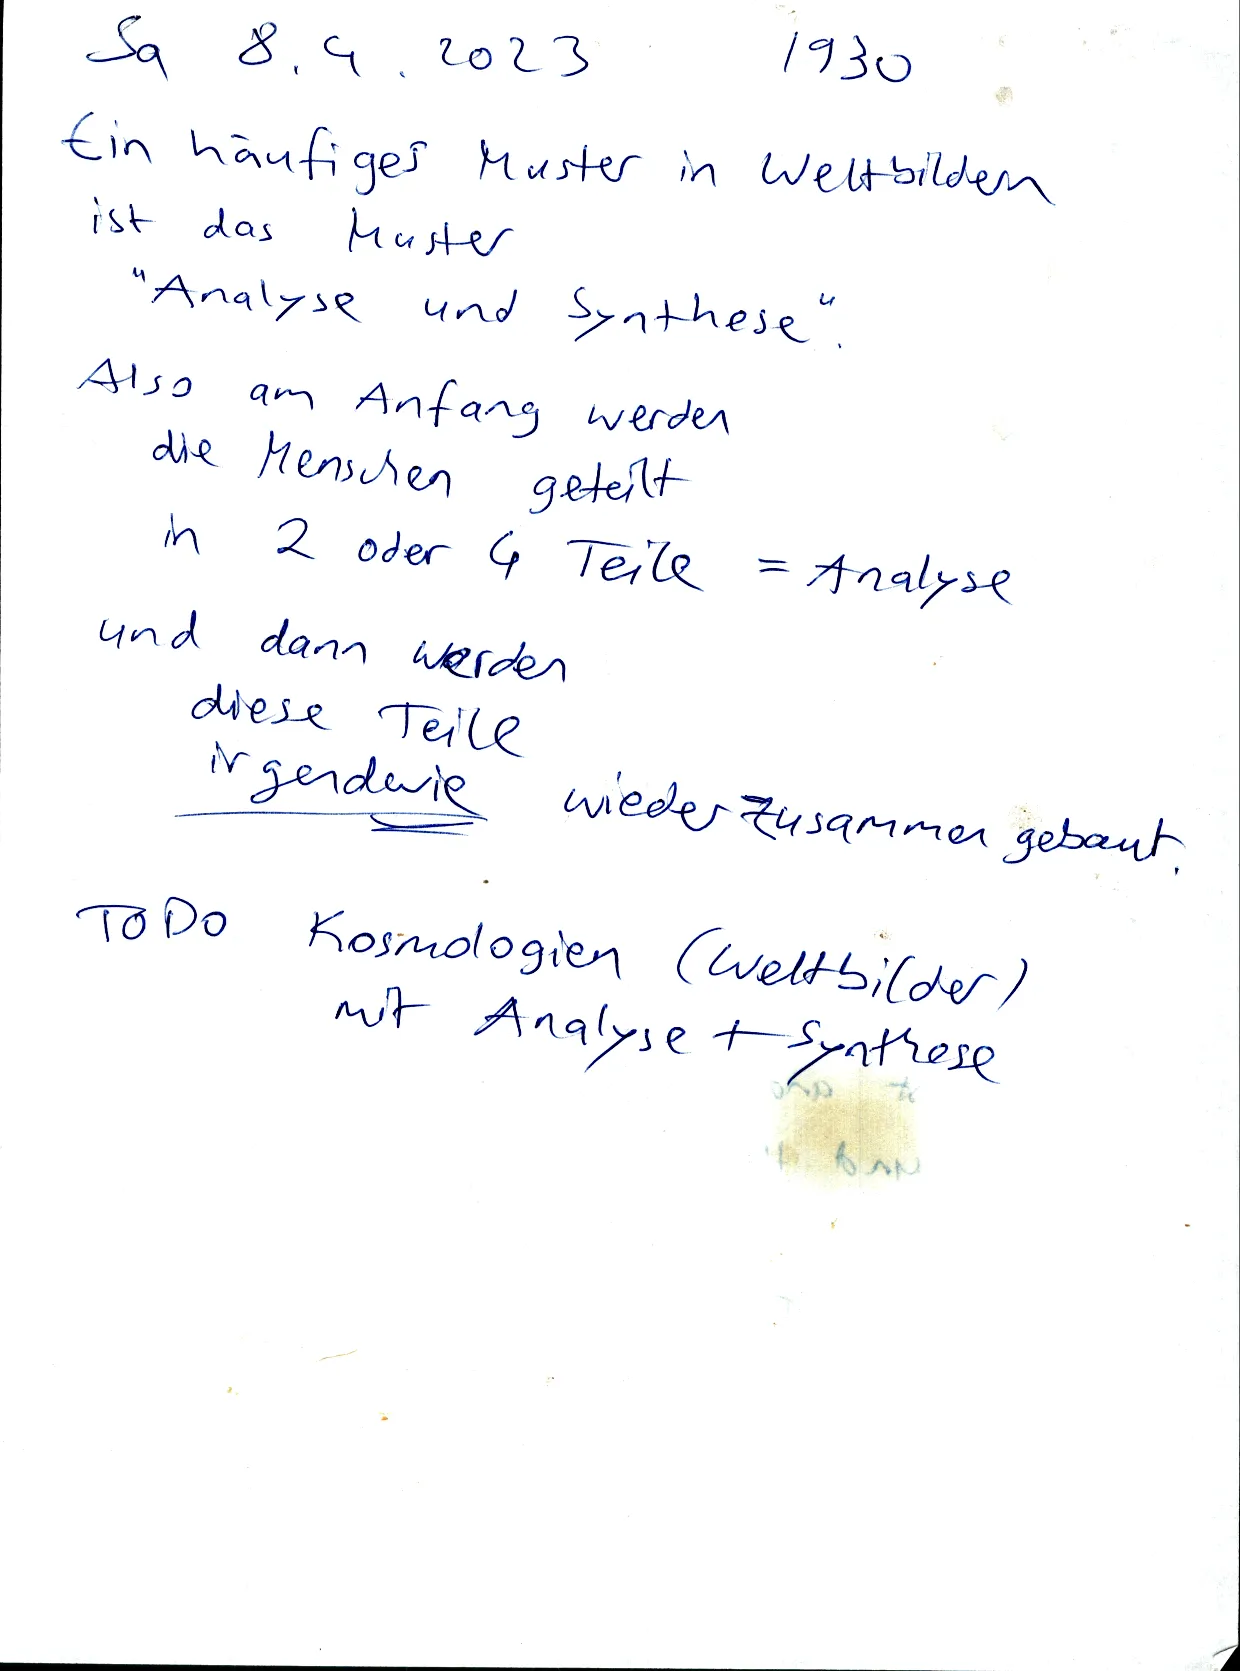 Sa 8.4.2023 1930
Ein häufiges Muster in Weltbildern
ist das Muster
"Analyse und Synthese".
Also am Anfang werden
die Menschen geteilt
in 2 oder 4 Teile = Analyse
und dann werden
diese Teile
irgendwie wieder zusammen gebaut.
TODO Kosmologien (Weltbilder)
mit Analyse + Synthese